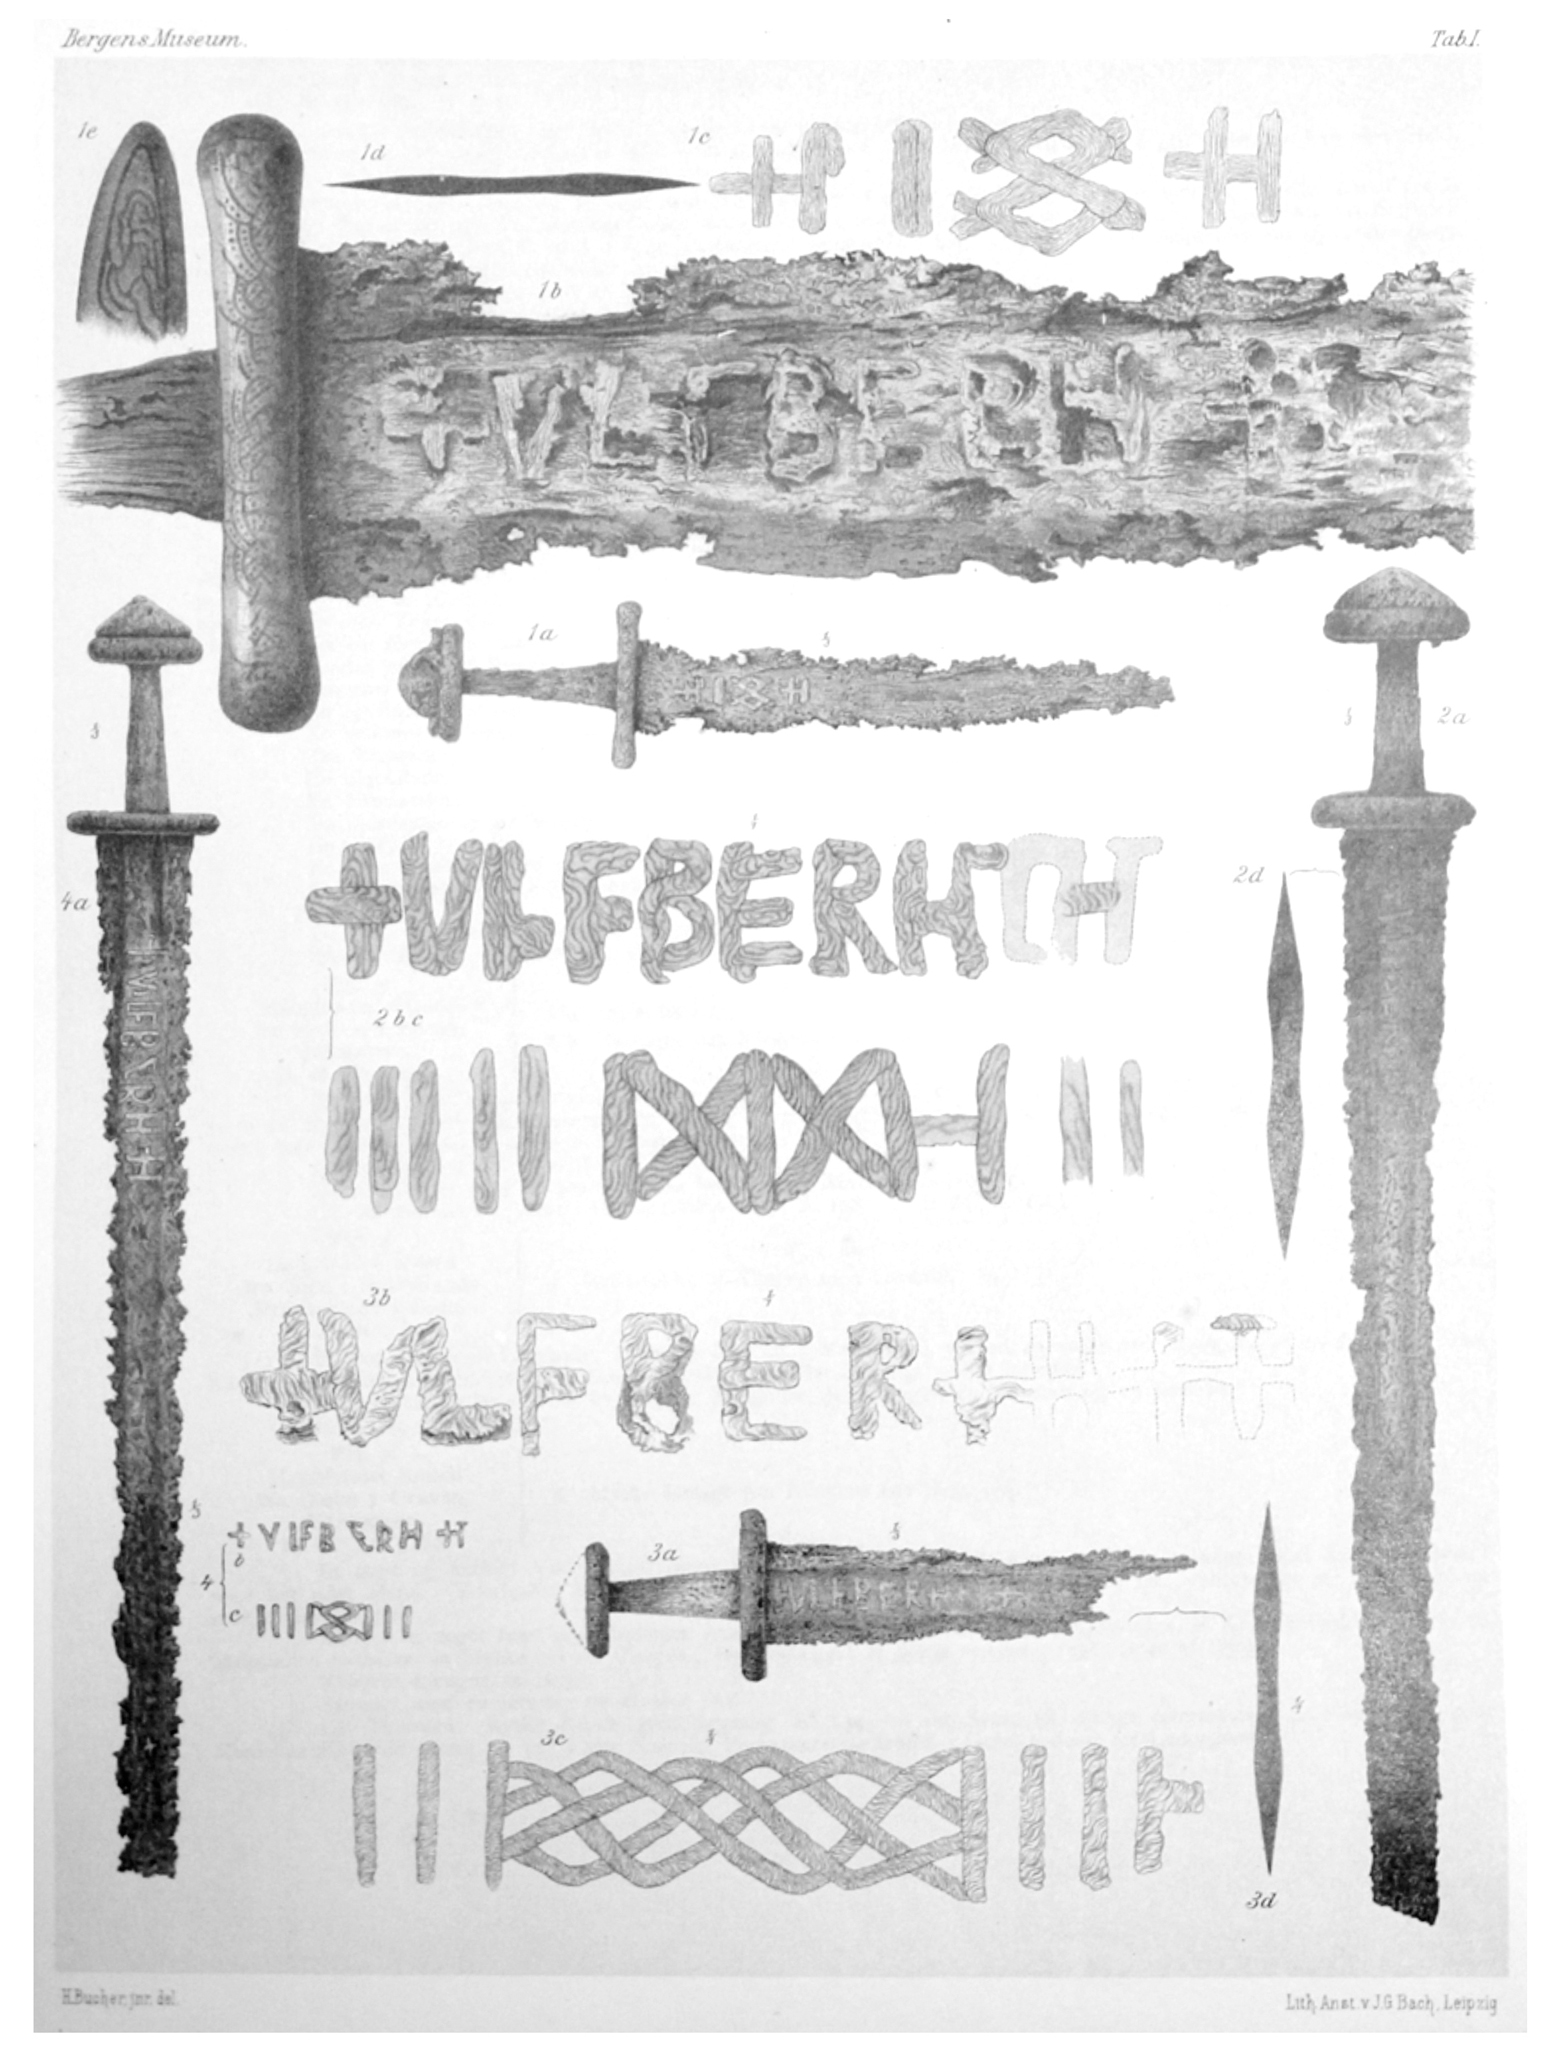 Bergens Museum.
Tab.I.
1e
1d
1c
1b
+VLFBERH
1a
2a
4a
+VLFBERH
2d
2bc
3b
+VLFBERH
+VLFBERH+T
b
4
c
3a
+VLFBERH
3c
3d
H.Bucher, jnr. del.
Lith. Anst. v. J.G. Bach, Leipzig